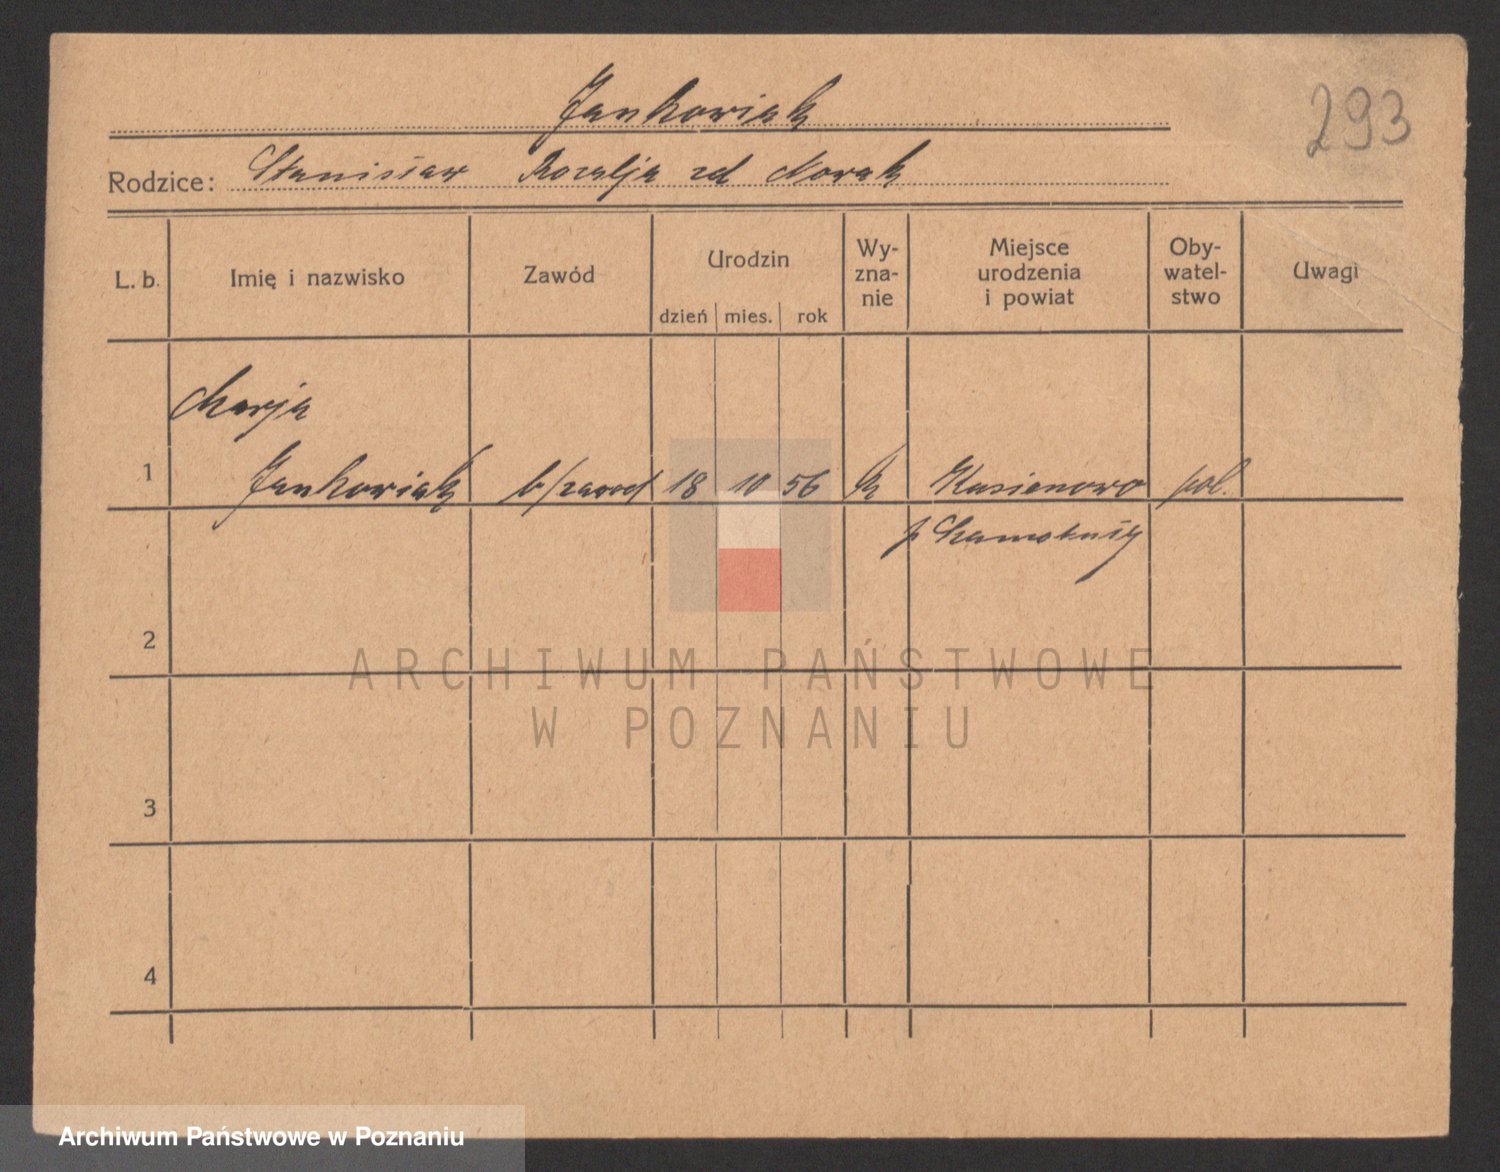 Jankowiak
293
Rodzice: Stanisław Rozalja zd Nowak
L. b. Imię i nazwisko Zawód Urodzin dzień mies. rok Wy-zna-nie Miejsce urodzenia i powiat Oby-watel-stwo Uwagi
Marja
1 Jankowiak b/zawod 18 10 56 k Kasienowo pol.
p Szamotuły
2
ARCHIWUM PAŃSTWOWE
W POZNANIU
3
4
Archiwum Państwowe w Poznaniu